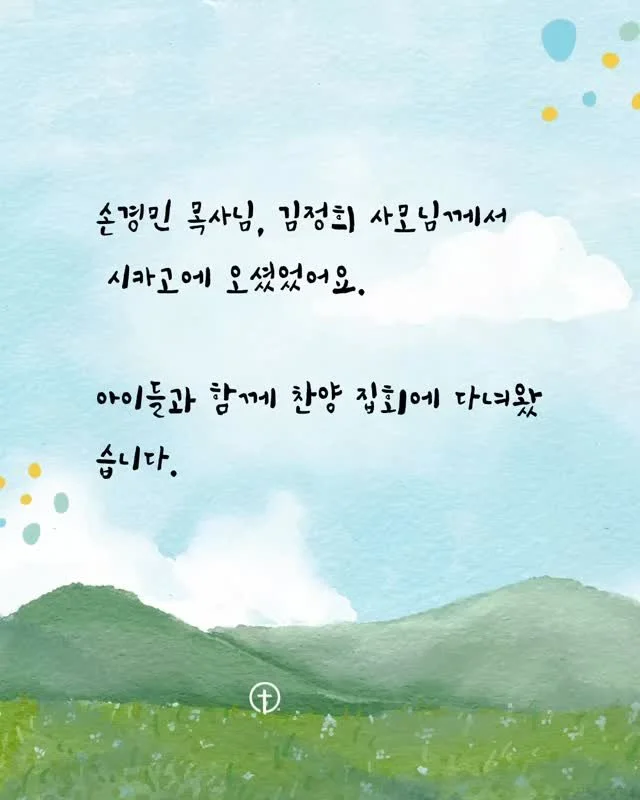 손경민 목사님, 김정희 사모님께서
시카고에 오셨었어요.
아이들과 함께 찬양 집회에 다녀왔
습니다.